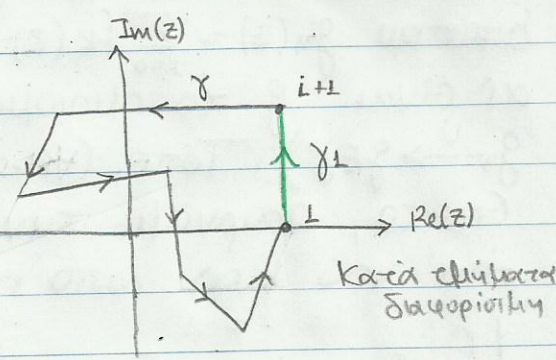 Im(z)
γ
i+1
γ1
1
Re(z)
Κατά τμήματα
διαφορίσιμη